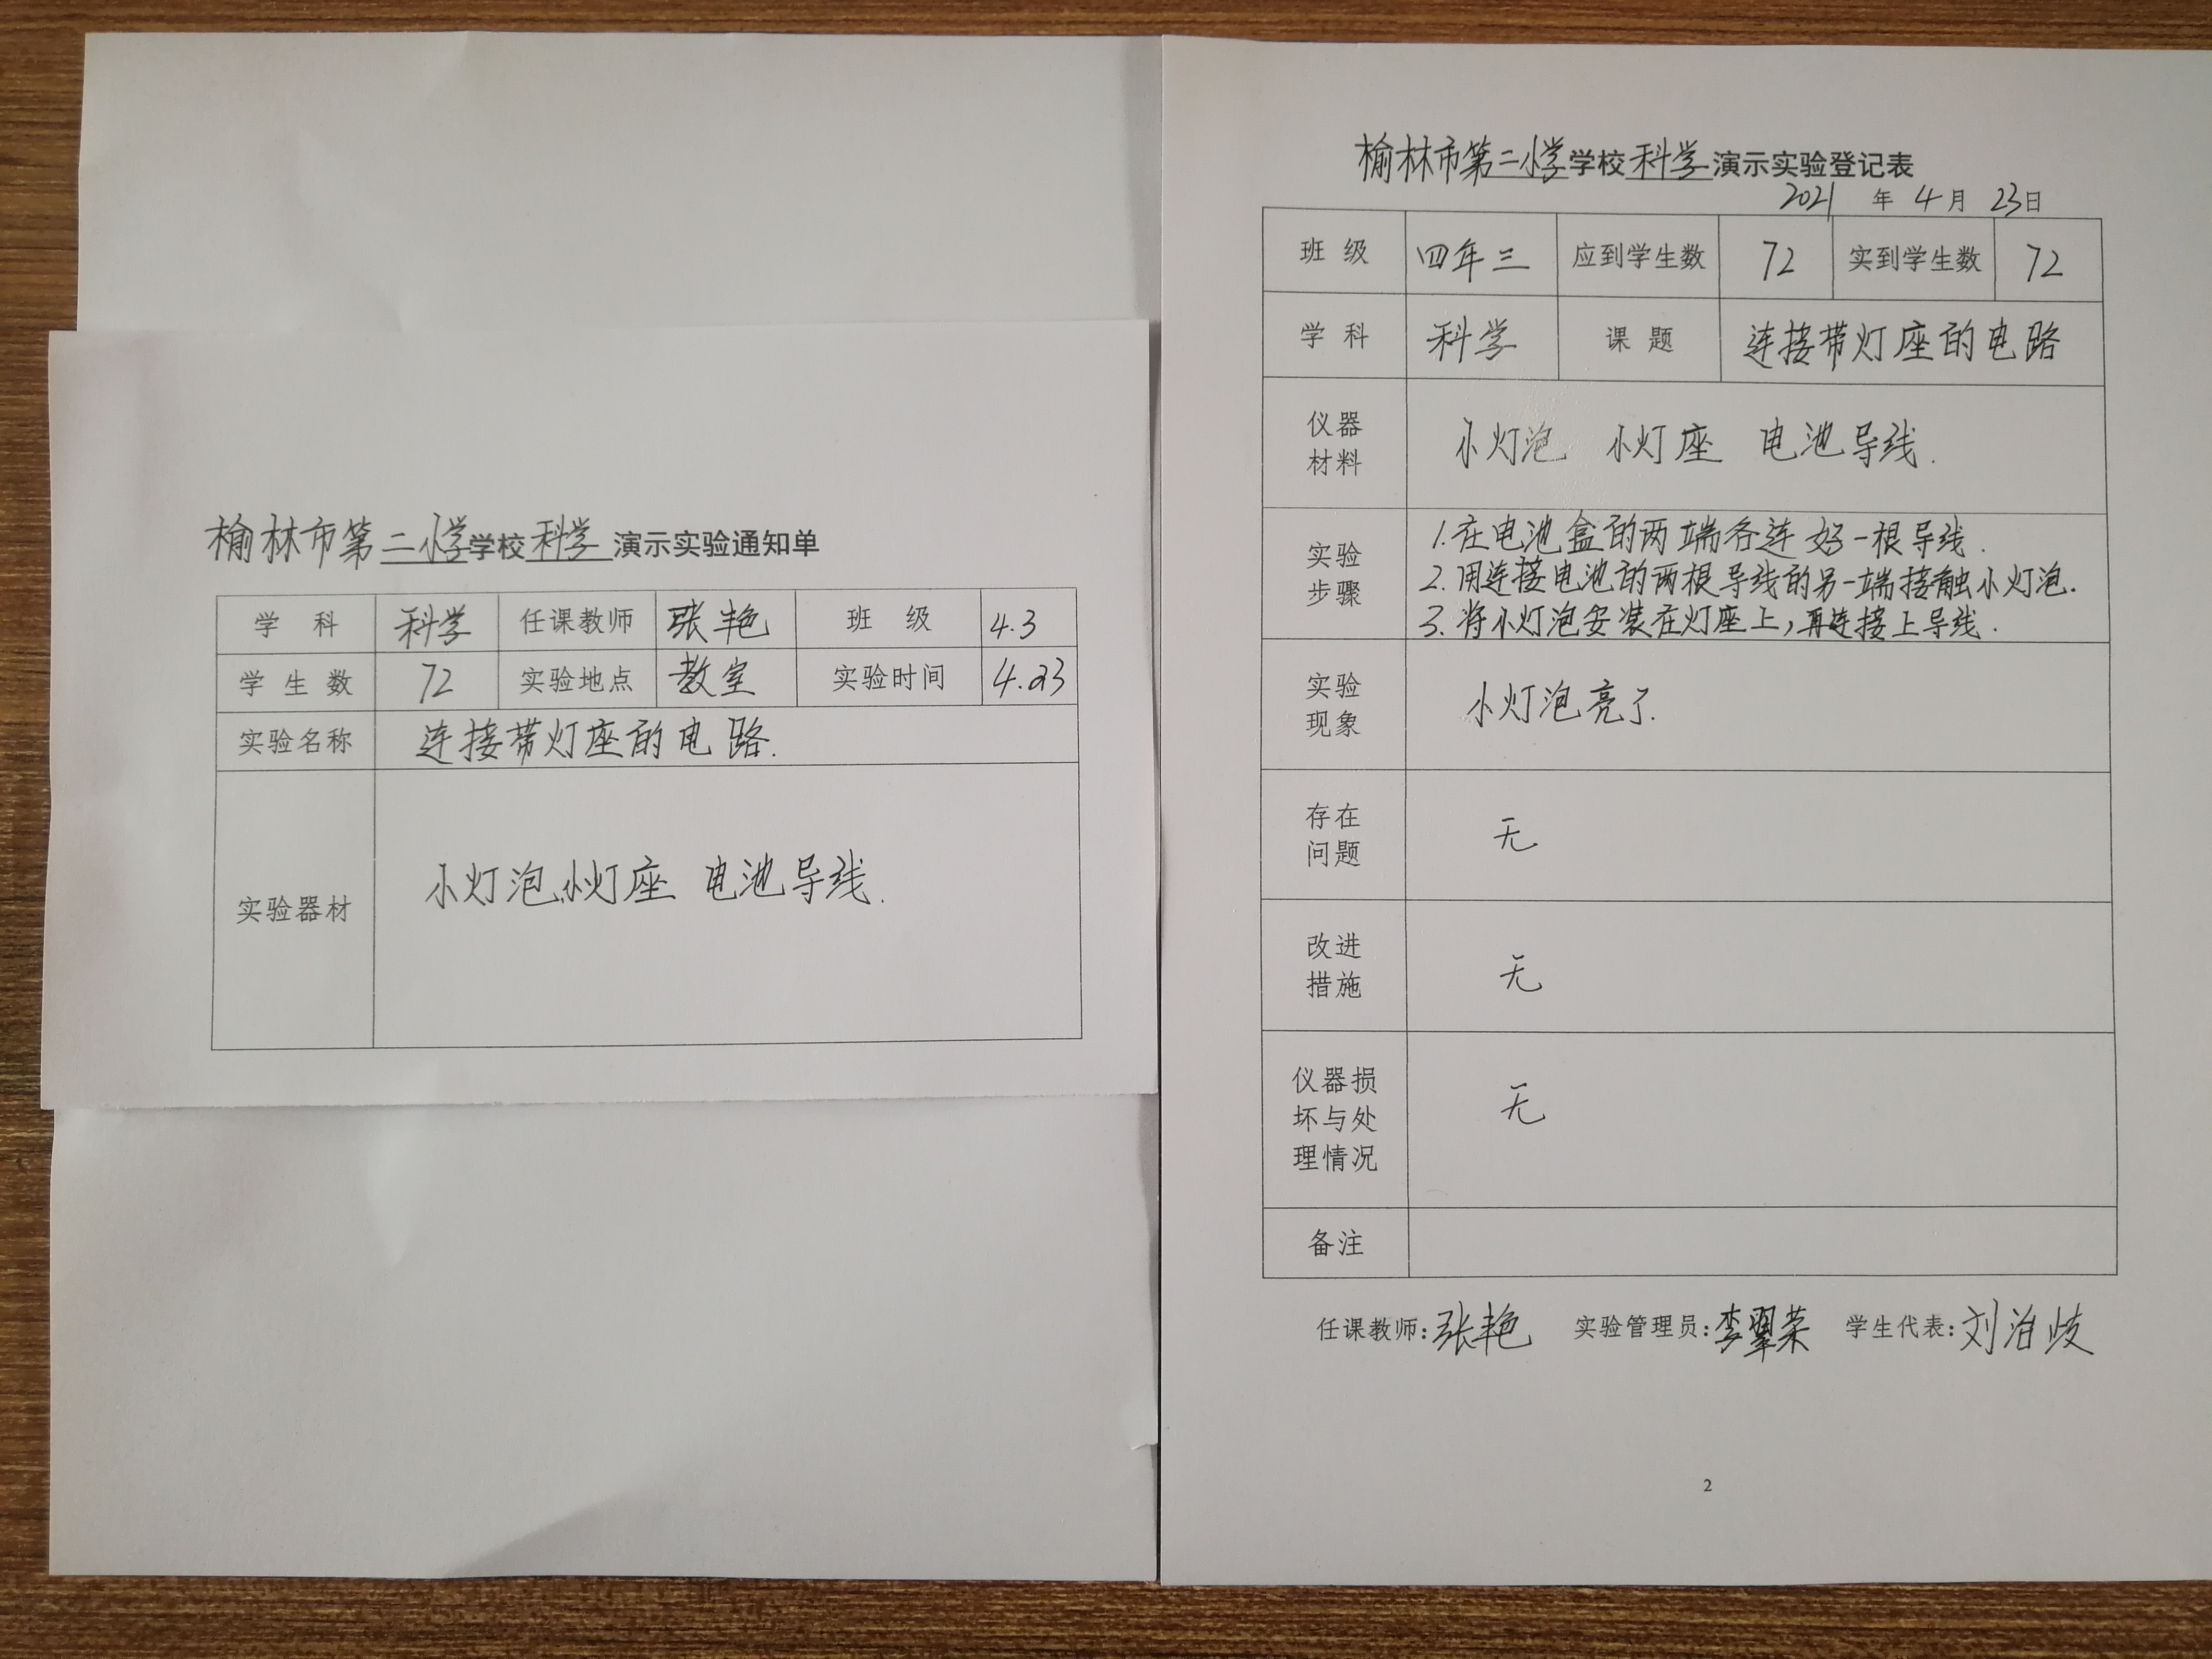 榆林市第二小学学校科学演示实验通知单
学 科 科学 任课教师 张艳 班 级 4.3
学 生 数 72 实验地点 教室 实验时间 4.23
实验名称 连接带灯座的电路.
实验器材 小灯泡、小灯座 电池导线.
榆林市第二小学学校科学演示实验登记表
2021 年 4 月 23日
班 级 四年三 应到学生数 72 实到学生数 72
学 科 科学 课 题 连接带灯座的电路
仪器
材料
小灯泡 小灯座 电池导线.
实验
步骤
1.在电池盒的两端各连好一根导线.
2.用连接电池的两根导线的另一端接触小灯泡.
3.将小灯泡安装在灯座上,再连接上导线.
实验
现象
小灯泡亮了.
存在
问题
无
改进
措施
无
仪器损
坏与处
理情况
无
备注
任课教师:张艳 实验管理员:李翠荣 学生代表:刘
2